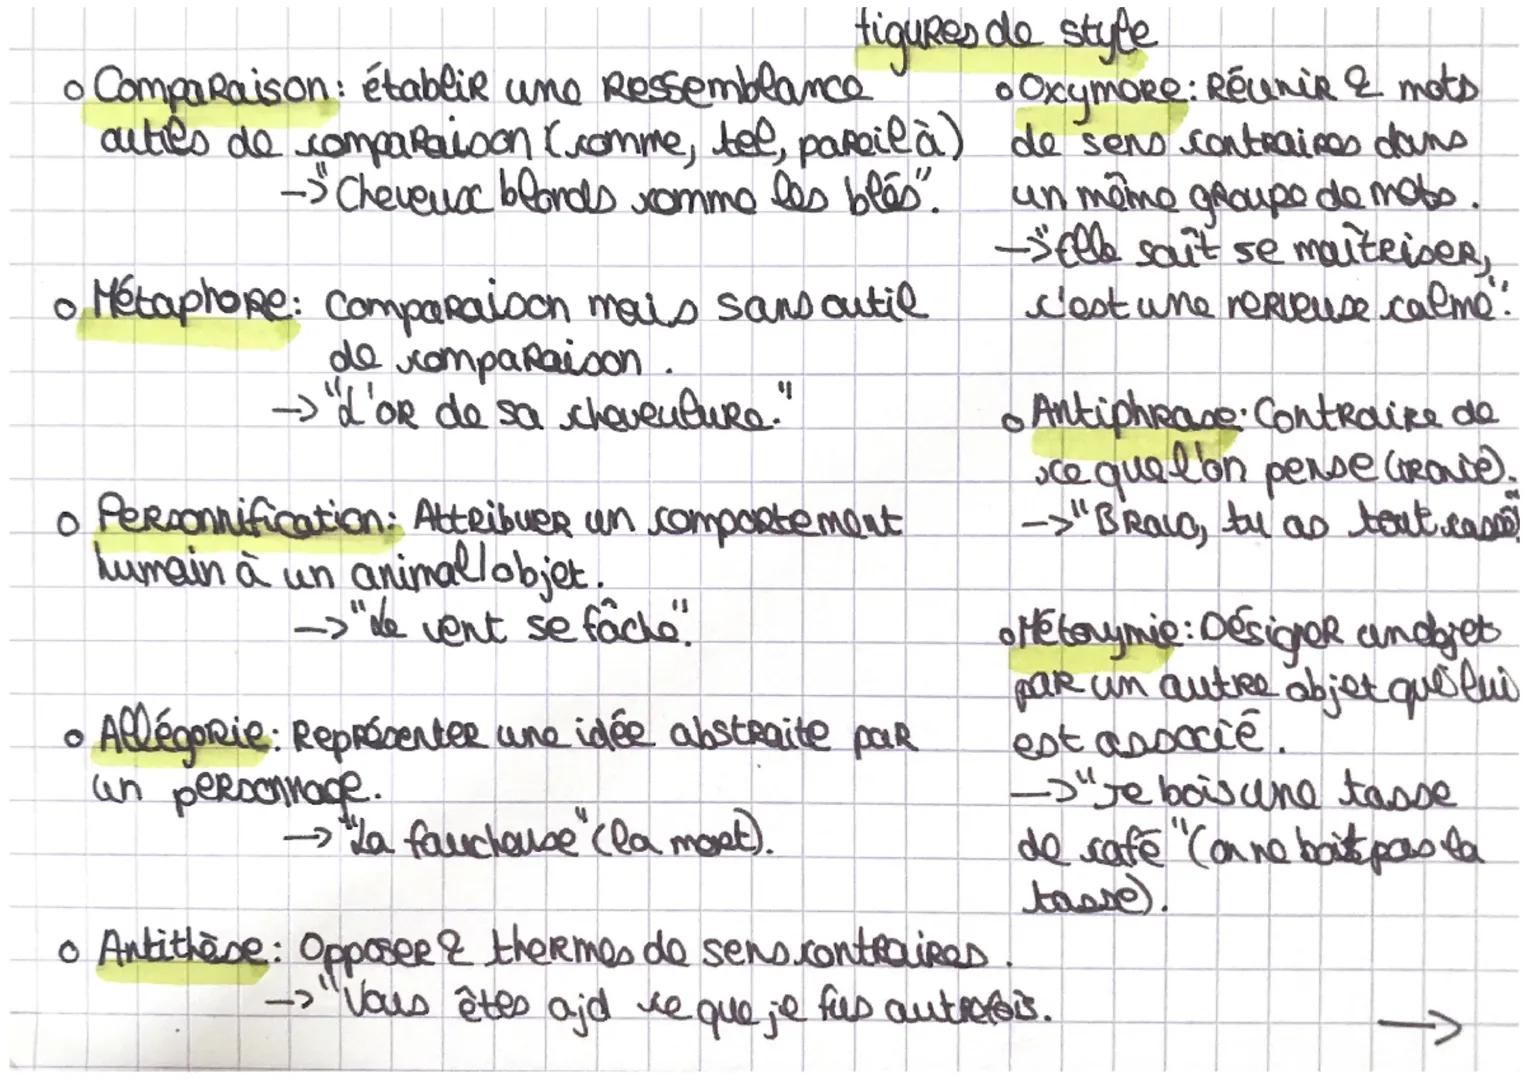 figures de style
o Comparaison: établir une ressemblance
outils de comparaison (comme, tel, pareil à)
-> "Cheveux blonds comme les blés".
o Métaphore: Comparaison mais sans outil
de comparaison.
-> "L'or de sa chevelure."
o Personnification: Attribuer un comportement
humain à un animal/objet.
-> "Le vent se fâche".
o Allégorie: Représenter une idée abstraite par
un personnage.
-> "La faucheuse" (la mort).
o Antithèse: Opposer 2 thermes de sens contraires.
-> "Vous êtes ajd ce que je fus autrefois.
o Oxymore: Réunir 2 mots
de sens contraires dans
un même groupe de mots.
-> "Elle sait se maîtriser,
c'est une calme".
o Antiphrase: Contraire de
ce que l'on pense (ironie).
-> "Bravo, tu as tout cassé"
o Métonymie: Désigner un objet
par un autre objet qui lui
est associé.
-> "Je bois une tasse
de café" (on ne boit pas la
tasse).
->